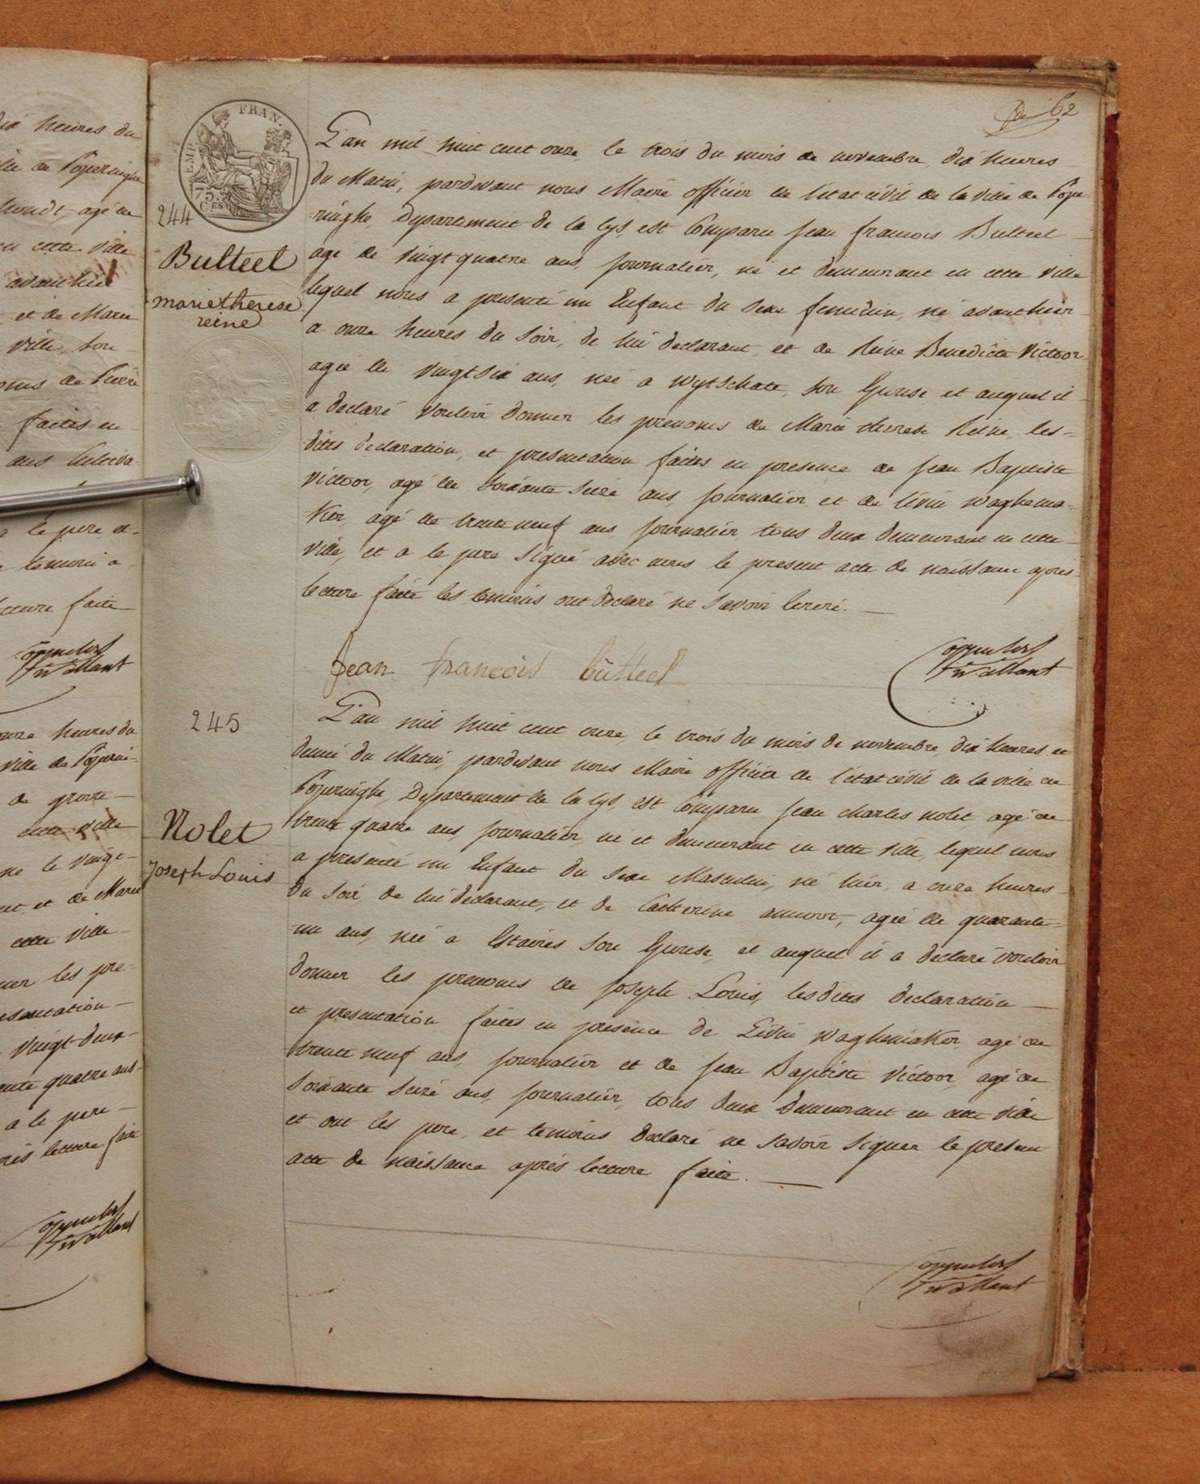 62
FRAN.
EMP.
75 C
244
Bulteel
marie therese
reine
L'an mil huit cent onze le trois du mois de novembre dix heures
du Matin, pardevant nous Maire officier de l'etat civil de la ville de Pope
ringhe, Departement de la Lys, est Comparu jean francois Bulteel
agé de vingt quatre ans, journalier, né et demeurant en cette ville
lequel nous a presenté un Enfant du sexe feminin, né avanthier
a onze heures du soir, de lui declarant, et de Reine Benedicte Victoor
agée de vingt six ans, née a Wytschate, son Epouse et auquel il
a declaré vouloir donner les prenoms de Marie therese Reine, les-
dites declaration, et presentation faites en presence de jean Baptiste
Victoor, agé de soixante seize ans journalier et de Livin Waghema-
ker, agé de trente neuf ans journalier tous deux demeurant en cette
ville, et a le pere signé avec nous le present acte de naissance apres
lecture faite les temoins ont declaré ne savoir ecrire.
jean francois bulteel
245
Nolet
Joseph Louis
L'an mil huit cent onze, le trois du mois de novembre dix heures et
demie du Matin, pardevant nous Maire officier de l'etat civil de la ville de
Poperinghe, Departement de la Lys, est Comparu jean charles nolet agé de
trente quatre ans, journalier, né et demeurant en cette ville, lequel nous
a presenté un Enfant du sexe Masculin, né hier, a onze heures
du soir, de lui declarant, et de Catherine agée de quarante-
un ans, née a Estaires son Epouse, et auquel il a declaré vouloir
donner les prenoms de joseph Louis, lesdites declaration
et presentation faites en presence de Livin Waghemaker, agé de
trente neuf ans, journalier et de jean Baptiste Victoor, agé de
soixante seize ans, journalier, tous deux demeurant en cette ville
et ont les pere, et temoins declaré ne savoir signer le present
acte de naissance aprés lecture faite.